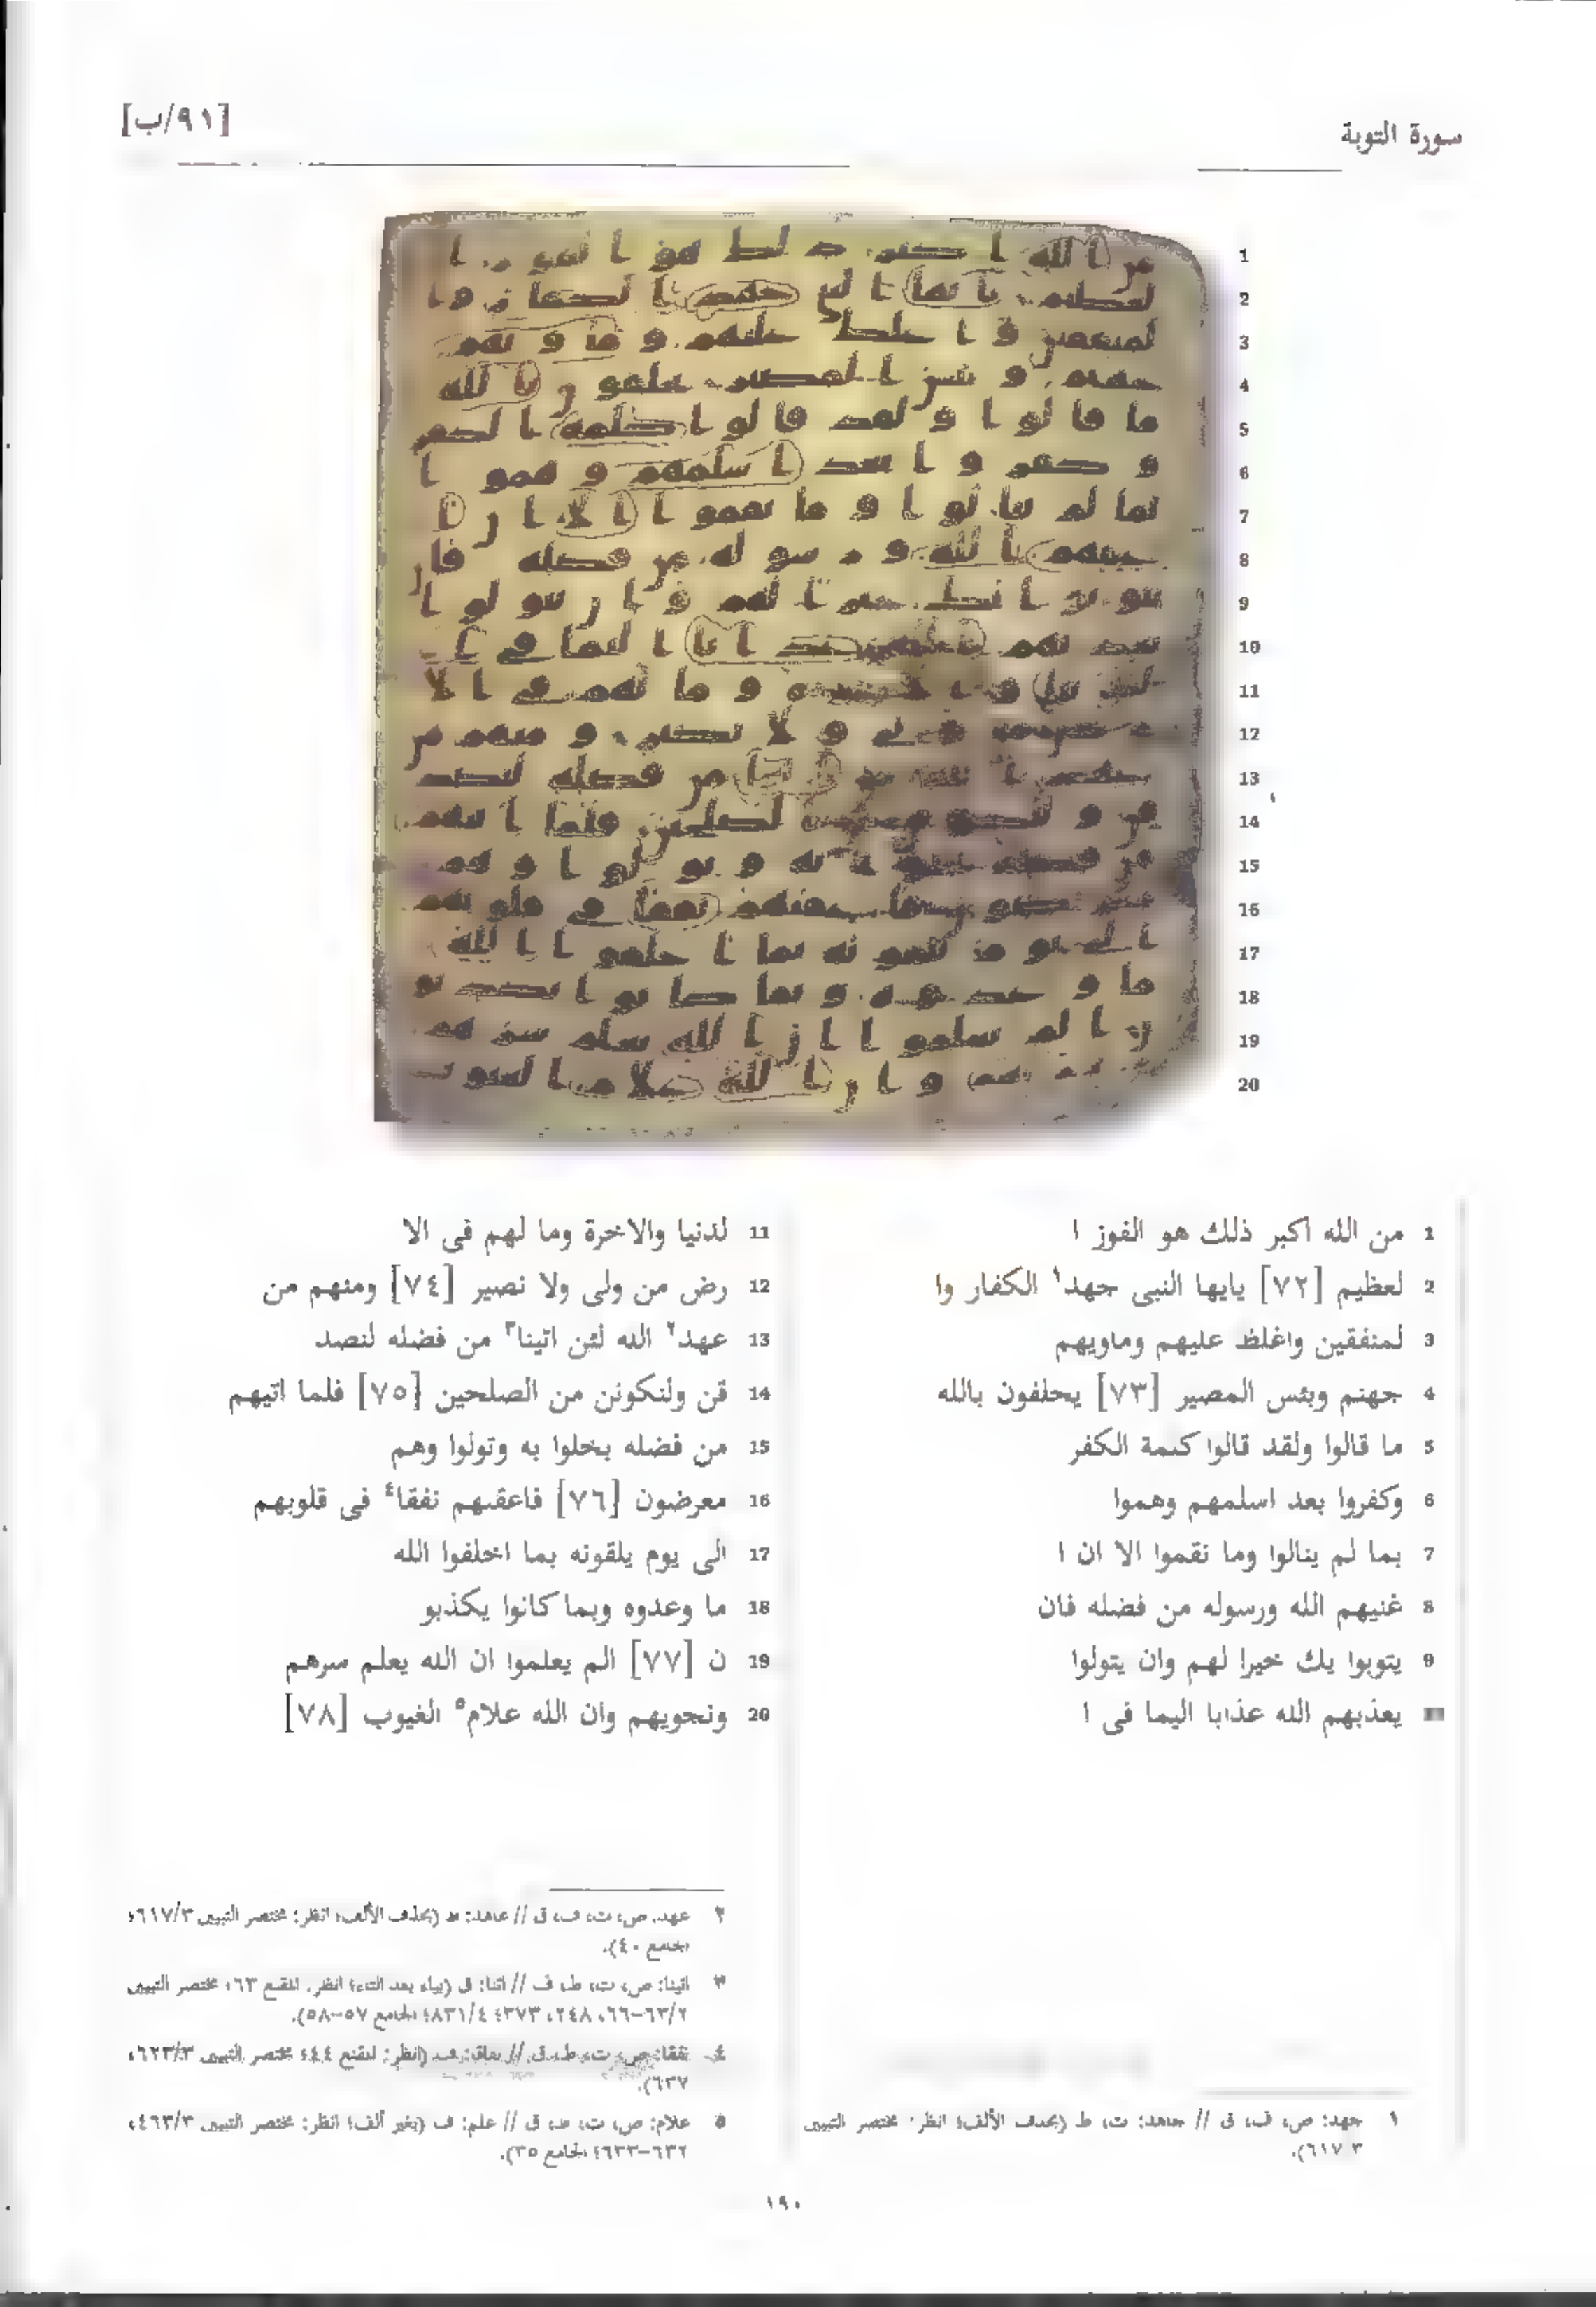 سورة التوبة
[٩١/ب]
1 من الله اكبر ذلك هو الفوز ا
2 لعظيم [٧٢] يايها النبى جهد١ الكفار وا
3 لمنفقين واغلظ عليهم وماويهم
4 جهنم وبئس المصير [٧٣] يحلفون بالله
5 ما قالوا ولقد قالوا كلمة الكفر
6 وكفروا بعد اسلمهم وهموا
7 بما لم ينالوا وما نقموا الا ان ا
8 غنيهم الله ورسوله من فضله فان
9 يتوبوا يك خيرا لهم وان يتولوا
يعذبهم الله عذابا اليما فى ا
11 لدنيا والاخرة وما لهم فى الا
12 رض من ولى ولا نصير [٧٤] ومنهم من
13 عهد٢ الله لئن اتينا٣ من فضله لنصد
14 قن ولنكونن من الصلحين [٧٥] فلما اتيهم
15 من فضله بخلوا به وتولوا وهم
16 معرضون [٧٦] فاعقبهم نفقا٤ فى قلوبهم
17 الى يوم يلقونه بما اخلفوا الله
18 ما وعدوه وبما كانوا يكذبو
19 ن [٧٧] الم يعلموا ان الله يعلم سرهم
20 ونجويهم وان الله علام٥ الغيوب [٧٨]
١ جهد: ص، ف، ق // جاهد: ت، ط (بحذف الألف؛ انظر: مختصر التبيين
٣ ٦١٧).
٢ عهد: ص، ت، ف، ق // عاهد: ط (بحذف الألف؛ انظر: مختصر التبيين ٦١٧/٣؛
الجامع ٤٠).
٣ اتينا: ص، ت، ط، ف // اتنا: ق (بياء بعد التاء؛ انظر: المقنع ٦٣؛ مختصر التبيين
٦٣/٢-٦٦، ٢٤٨، ٣٧٣؛ ٨٣١/٤؛ الجامع ٥٧-٥٨).
٤ نفقا: ص، ت، ط، ق // نفاقا: ف (انظر: المقنع ٤٤؛ مختصر التبيين ٦٢٣/٣،
٦٣٧).
٥ علام: ص، ت، ط، ق // علم: ف (بغير ألف؛ انظر: مختصر التبيين ٤٦٣/٣،
٦٣٢-٦٣٣؛ الجامع ٣٥).
١٩٠